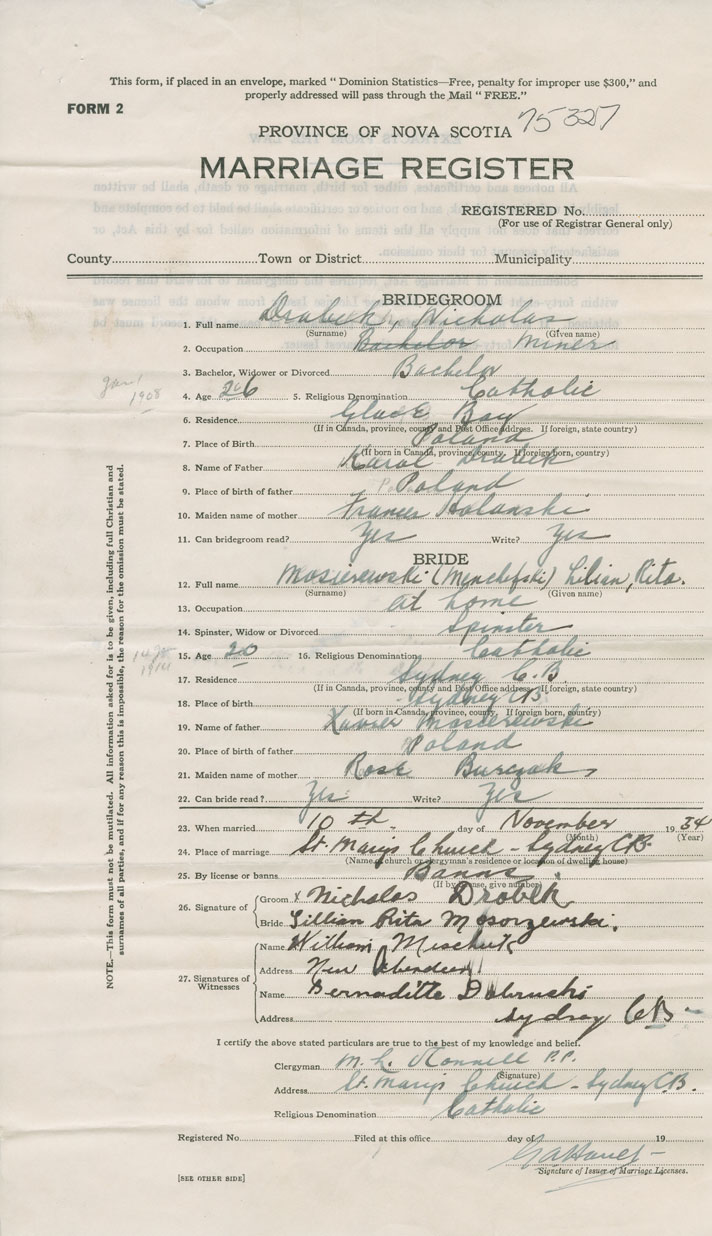 This form, if placed in an envelope, marked "Dominion Statistics—Free, penalty for improper use $300," and
properly addressed will pass through the Mail "FREE."
FORM 2
75327
PROVINCE OF NOVA SCOTIA
MARRIAGE REGISTER
REGISTERED No.
(For use of Registrar General only)
County Town or District Municipality
BRIDEGROOM
1. Full name Drabek, Nicholas
(Surname) (Given name)
2. Occupation Bachelor Miner
3. Bachelor, Widower or Divorced Bachelor
Jan 1
1908
4. Age 26 5. Religious Denomination Catholic
6. Residence Glace Bay
(If in Canada, province, county and Post Office address. If foreign, state country)
7. Place of Birth Poland
(If born in Canada, province, county. If foreign born, country)
8. Name of Father Karol Drabek
9. Place of birth of father Poland
10. Maiden name of mother Frances Holanski
11. Can bridegroom read? Yes Write? Yes
BRIDE
12. Full name Mosierewski (Menclefski) Lilian, Rita.
(Surname) (Given name)
13. Occupation at home
14. Spinster, Widow or Divorced Spinster
1914
15. Age 20 16. Religious Denomination Catholic
17. Residence Sydney C.B.
(If in Canada, province, county and Post Office address. If foreign, state country)
18. Place of birth Sydney CB
(If born in Canada, province, county. If foreign born, country)
19. Name of father Xavier Mosierewski
20. Place of birth of father Poland
21. Maiden name of mother Rose Burczak
22. Can bride read? Yes Write? Yes
23. When married 10th day of November 1934
(Month) (Year)
24. Place of marriage St. Marys Church - Sydney CB.
(Name of church or clergyman's residence or location of dwelling house)
25. By license or banns Banns
(If by license, give number)
26. Signature of
Groom x Nicholas Drobek
Bride Lillian Rita Mosorzewski.
27. Signatures of Witnesses
Name William Mischuk
Address New Aberdeen
Name Bernaditte Dobruski
Address Sydney CB
I certify the above stated particulars are true to the best of my knowledge and belief.
Clergyman M. L. P.P.
(Signature)
Address St. Marys Church - Sydney C.B.
Religious Denomination Catholic
Registered No. Filed at this office day of 19
Signature of Issuer of Marriage Licenses.
[SEE OTHER SIDE]
NOTE.—This form must not be mutilated. All information asked for is to be given, including full Christian and
surnames of all parties, and if for any reason this is impossible, the reason for the omission must be stated.